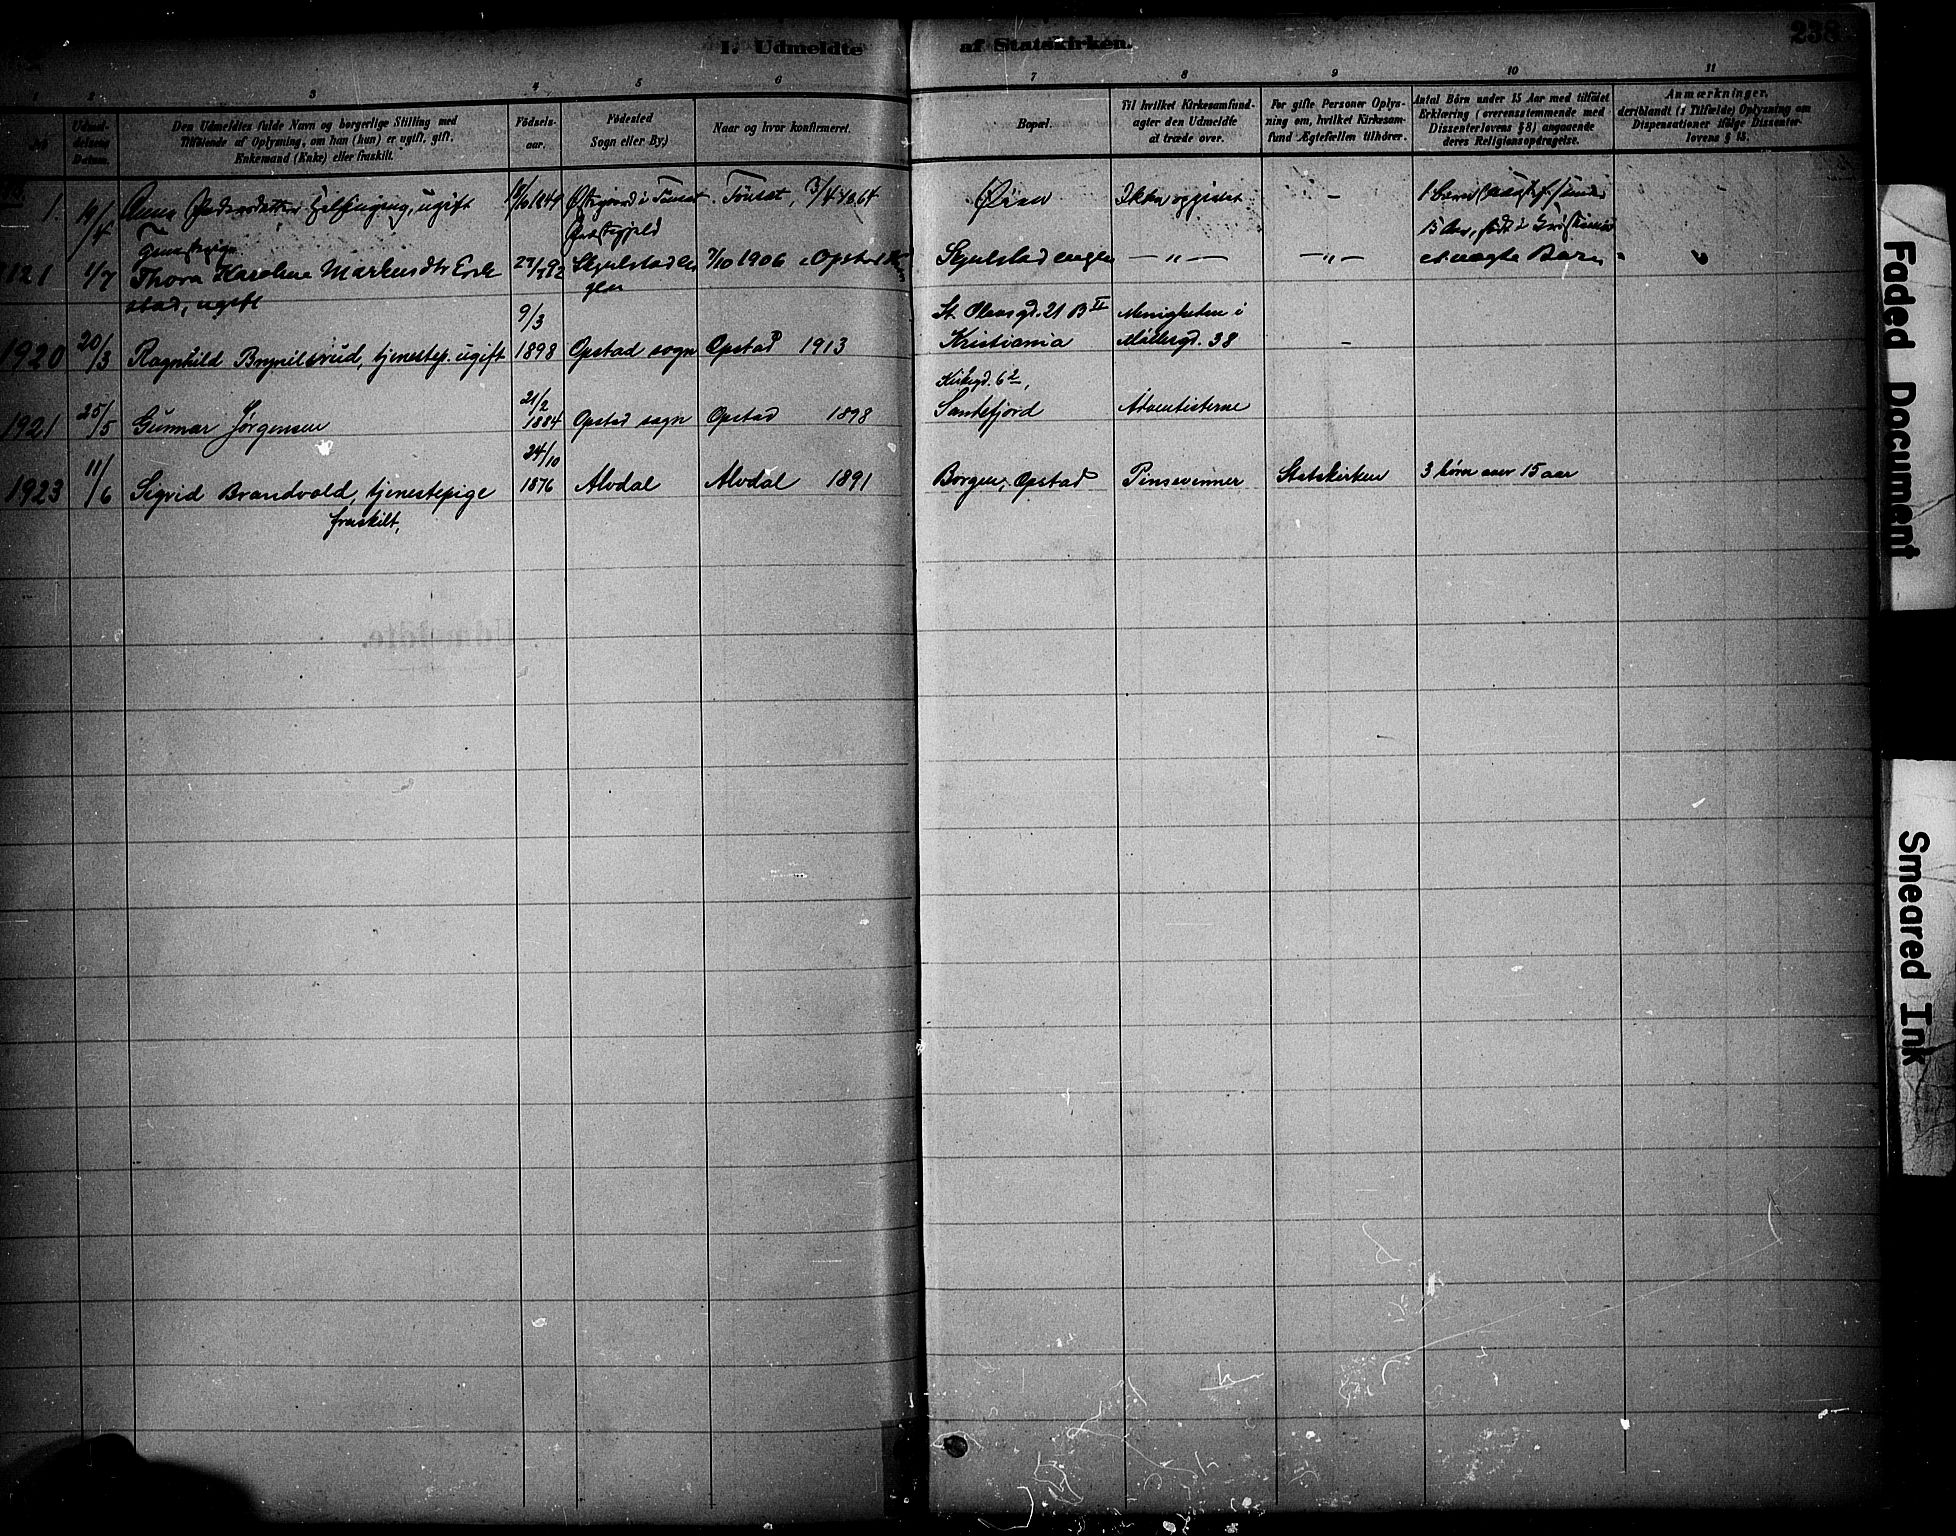 1. Udmeldte af Statskirken.
238
1 2 3 4 5 6 7 8 9 10 11
No
Udmel-
delsens
Datum.
Den Udmeldtes fulde Navn og borgerlige Stilling med
Tilføiende af Oplysning, om han (hun) er ugift, gift,
Enkemand (Enke) eller fraskilt.
Fødsels-
aar.
Fødested
Sogn eller By.)
Naar og hvor konfirmeret.
Bopæl.
Til hvilket Kirkesamfund-
agter den Udmeldte
at træde over.
For gifte Personer Oplys-
ning om, hvilket Kirkesam-
fund Ægtefællen tilhører.
Antal Børn under 15 Aar med tilføiet
Erklæring (overensstemmende med
Dissenterlovens § 8) angaaende
deres Religionsopdragelse.
Anmærkninger.
deriblandt (i Tilfælde) Oplysning om
Dispensationer ifølge Dissenter-
lovens § 18.
1. 19/4 Anna ugift 1849 i Tønset Tønset, 3/4 1864 Øien Ikke opgivet –
Præstegjeld 15 Aar, født i
1/7 Thora Karoline Markusdtr 7/10 1906 Opstad Skjulstadengen — " — — " — et uægte Barn
stad, ugift
9/3 St. Olavsgd. 21 B II Menigheten i
1920 20/3 Ragnhild Brynilsrud, tjenestep. ugift 1898 Opstad sogn Opstad 1913 Kristiania Møllergd. 38 –
21/2 Kirkegd. 6 2,
1921 25/5 Gunnar Jørgensen 1884 Opstad sogn Opstad 1898 Sandefjord Adventisterne
24/10
1923 11/6 Sigrid Brandvold, tjenestepige 1876 Alvdal Alvdal 1891 Borgen, Opstad Pinsevenner Statskirken 3 børn over 15 aar
fraskilt,
Udmeldte.
Faded Document
Smeared Ink